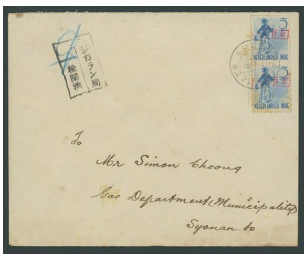 シカラン局
検閲済
5
NEDERLANDSCH INDIË
5
NEDERLANDSCH INDIË
To
Mr Simon Cheong
Gas Department, Municipality
Syonan-to